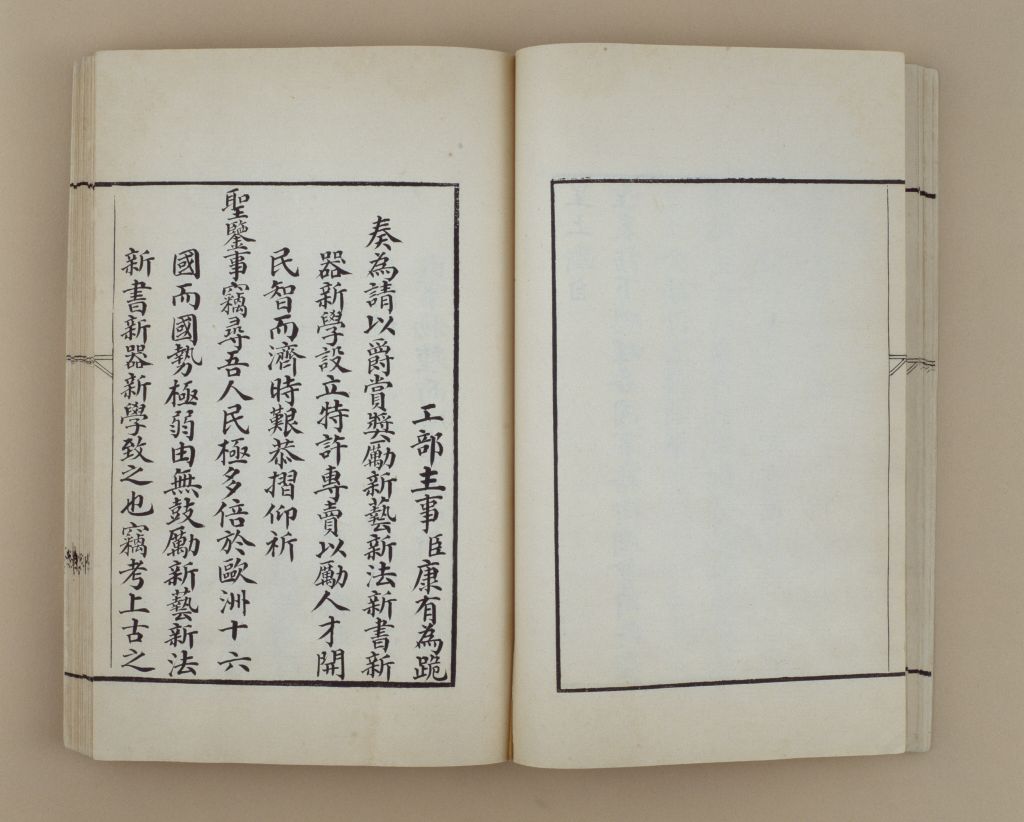 工部主事臣康有為跪
奏為請以爵賞獎勵新藝新法新書新
器新學設立特許專賣以勵人才開
民智而濟時艱恭摺仰祈
聖鑒事竊尋吾人民極多倍於歐洲十六
國而國勢極弱由無鼓勵新藝新法
新書新器新學致之也竊考上古之